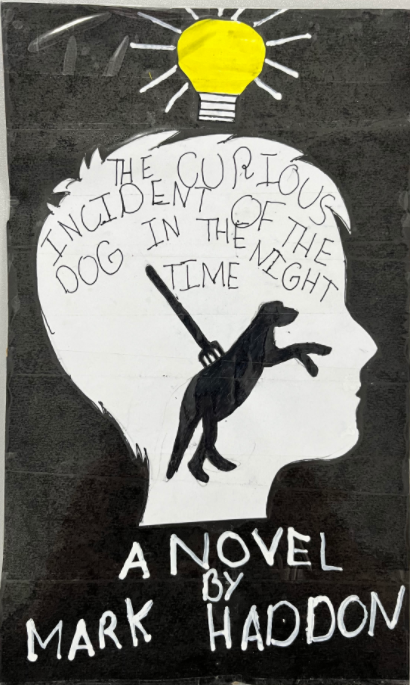 THE CURIOUS
INCIDENT OF THE
DOG IN THE NIGHT
TIME
A NOVEL
BY
MARK HADDON